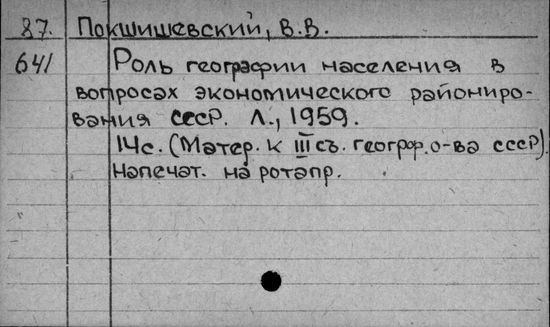 87. Покшишевский, В.В.
641 Роль географии населения в
вопросах экономического райониро-
вания СССР. Л., 1959.
14с. (Матер. к III съ. географ. о-ва СССР).
Напечат. на ротапр.